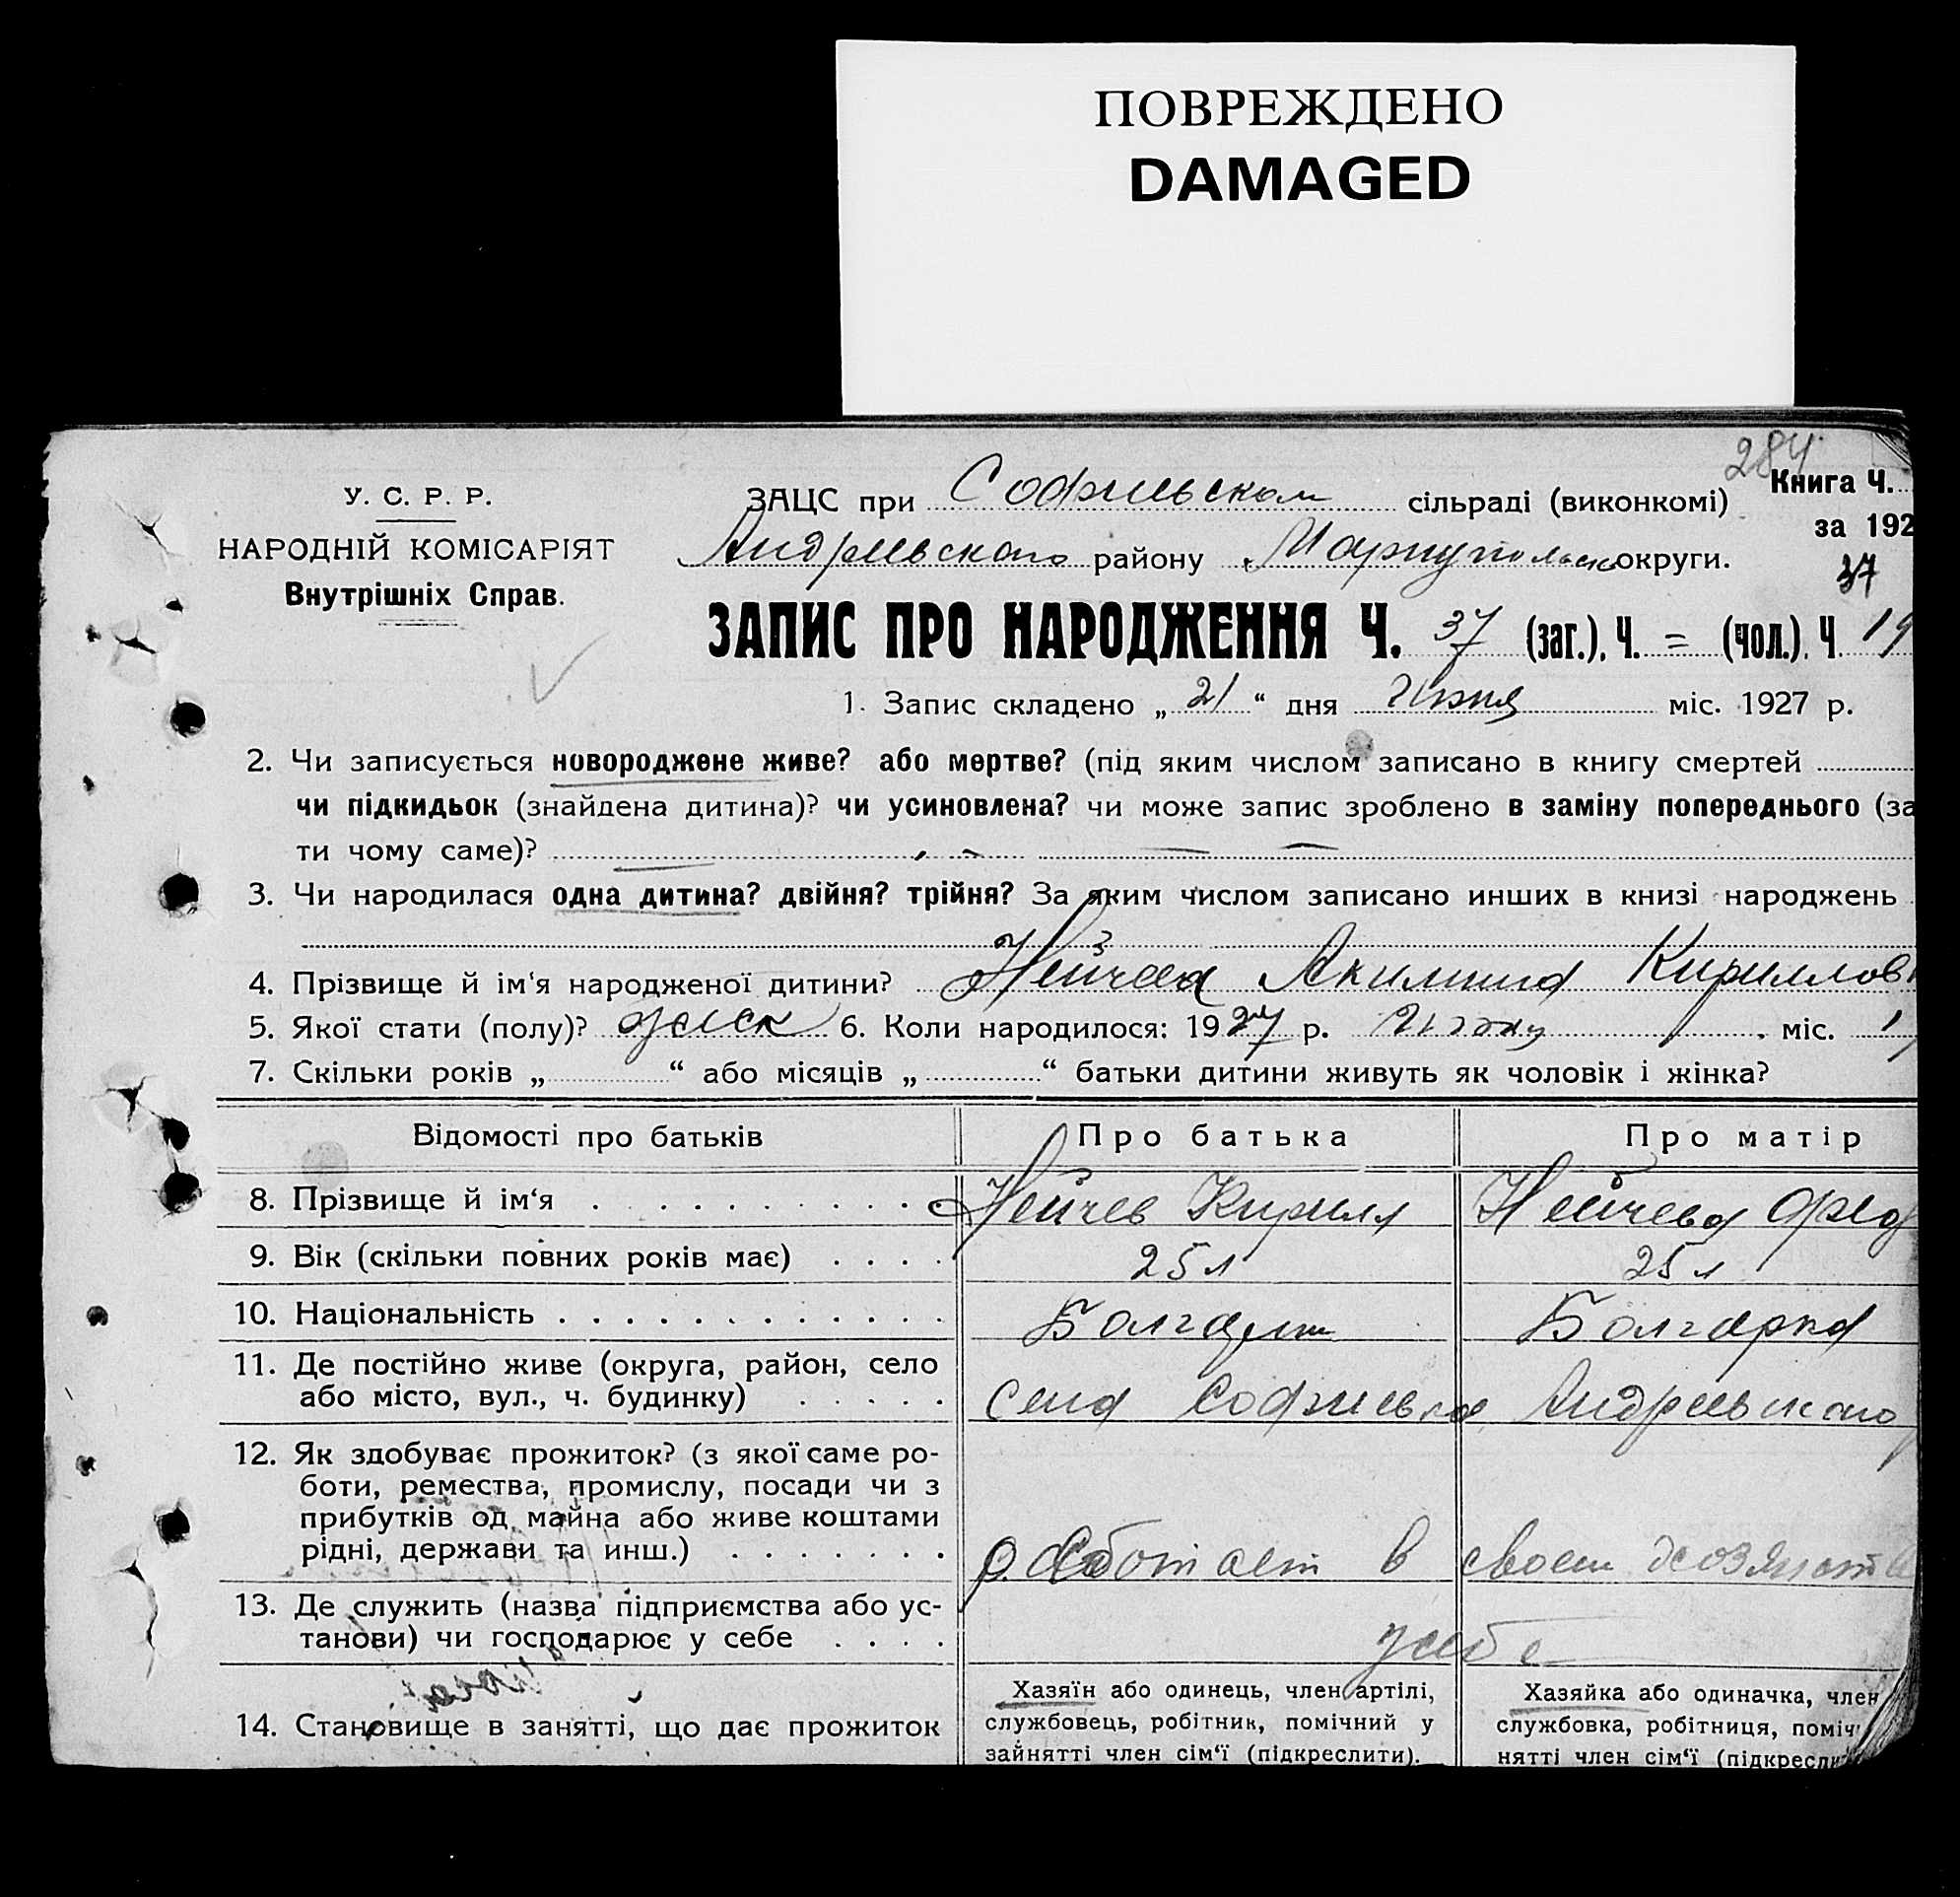 ПОВРЕЖДЕНО
DAMAGED
284
Книга Ч.
за 192
37
У. С. Р. Р.
НАРОДНІЙ КОМІСАРІЯТ
Внутрішніх Справ.
ЗАЦС при Софиевском сільраді (виконкомі)
Андреевского району Мариупольск округи.
ЗАПИС ПРО НАРОДЖЕННЯ Ч. 37 (заг.), Ч. = (чол.). Ч 19
1. Запис складено „ 21 “ дня Июня міс. 1927 р.
2. Чи записується новороджене живе? або мертве? (під яким числом записано в книгу смертей
чи підкидьок (знайдена дитина)? чи усиновлена? чи може запис зроблено в заміну попереднього (за
ти чому саме)?
3. Чи народилася одна дитина? двійня? трійня? За яким числом записано инших в книзі народжень
4. Прізвище й ім‘я народженої дитини? Нейчева Акилина Кириллов
5. Якої стати (полу)? женск 6. Коли народилося: 1927 р. Июня міс. 1
7. Скільки років „ “ або місяців „ “ батьки дитини живуть як чоловік і жінка?
Відомості про батьків Про батька Про матір
8. Прізвище й ім‘я Нейчев Кирилл Нейчева
9. Вік (скільки повних років має) 25 л 25 л
10. Національність Болгарин Болгарка
11. Де постійно живе (округа, район, село
або місто, вул., ч. будинку) село Софиевка Андреевского
12. Як здобуває прожиток? (з якої саме ро-
боти, ремества, промислу, посади чи з
прибутків од майна або живе коштами
рідні, держави та инш.) работает в своем хозяйств
13. Де служить (назва підприємства або ус-
танови) чи господарює у себе у себе
14. Становище в занятті, що дає прожиток
Хазяїн або одинець, член артілі,
службовець, робітник, помічний у
зайнятті член сім‘ї (підкреслити).
Хазяйка або одиначка, член
службовка, робітниця, поміч
нятті член сім‘ї (підкресли